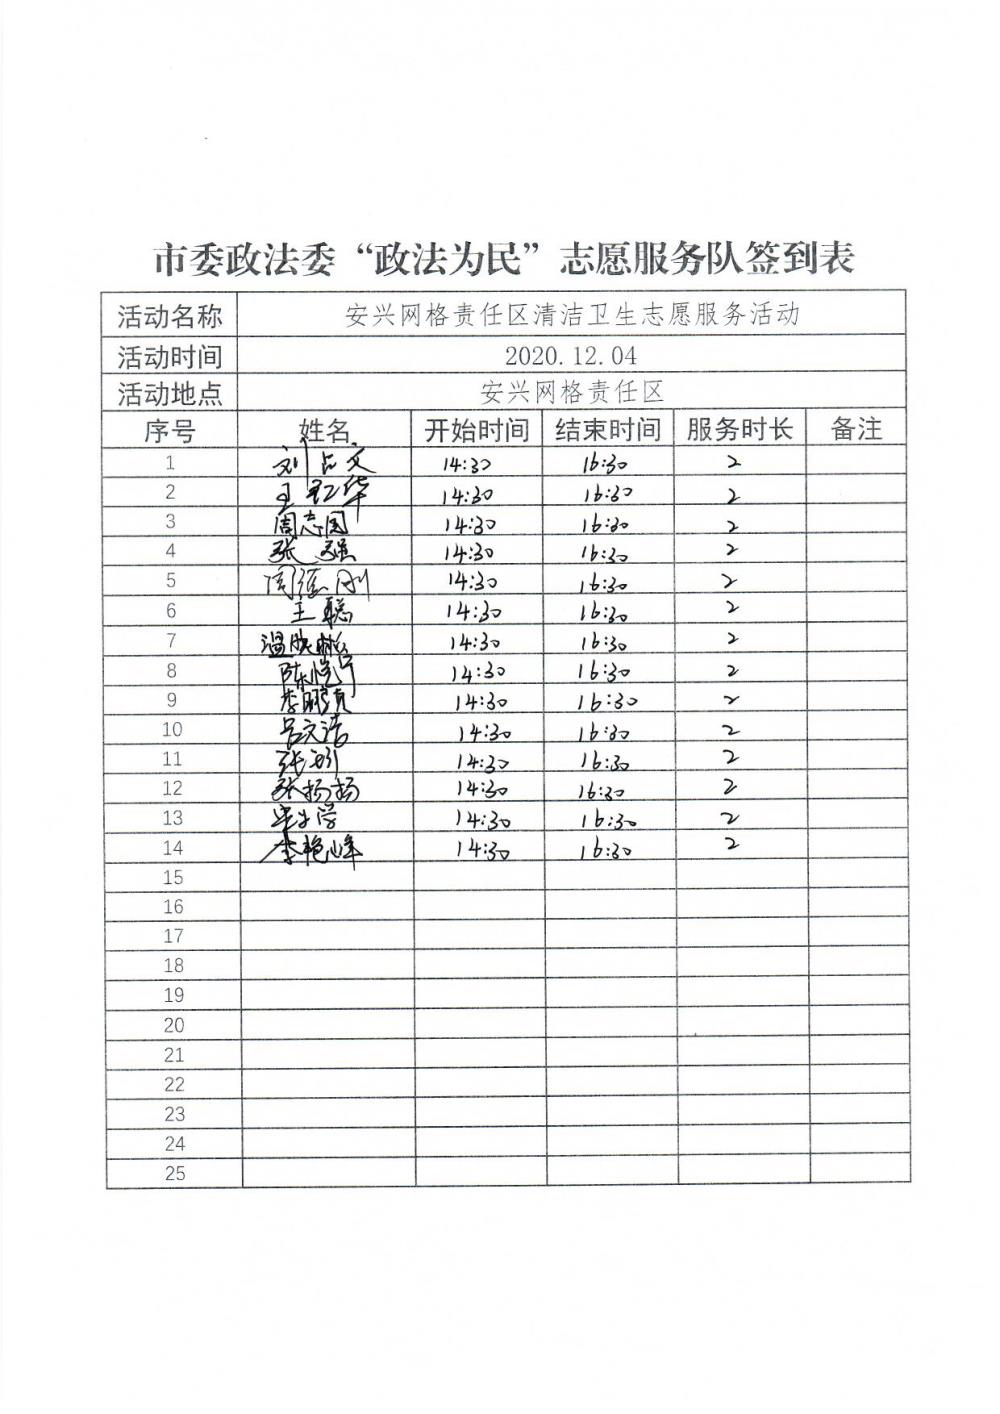 市委政法委“政法为民”志愿服务队签到表
活动名称 安兴网格责任区清洁卫生志愿服务活动
活动时间 2020.12.04
活动地点 安兴网格责任区
序号 姓名 开始时间 结束时间 服务时长 备注
1 刘占文 14:30 16:30 2
2 王红华 14:30 16:30 2
3 周志国 14:30 16:30 2
4 张强 14:30 16:30 2
5 14:30 16:30 2
6 王聪 14:30 16:30 2
7 温 14:30 16:30 2
8 陈 14:30 16:30 2
9 李鹏 14:30 16:30 2
10 吕文洁 14:30 16:30 2
11 张 14:30 16:30 2
12 张扬扬 14:30 16:30 2
13 14:30 16:30 2
14 李艳峰 14:30 16:30 2
15
16
17
18
19
20
21
22
23
24
25